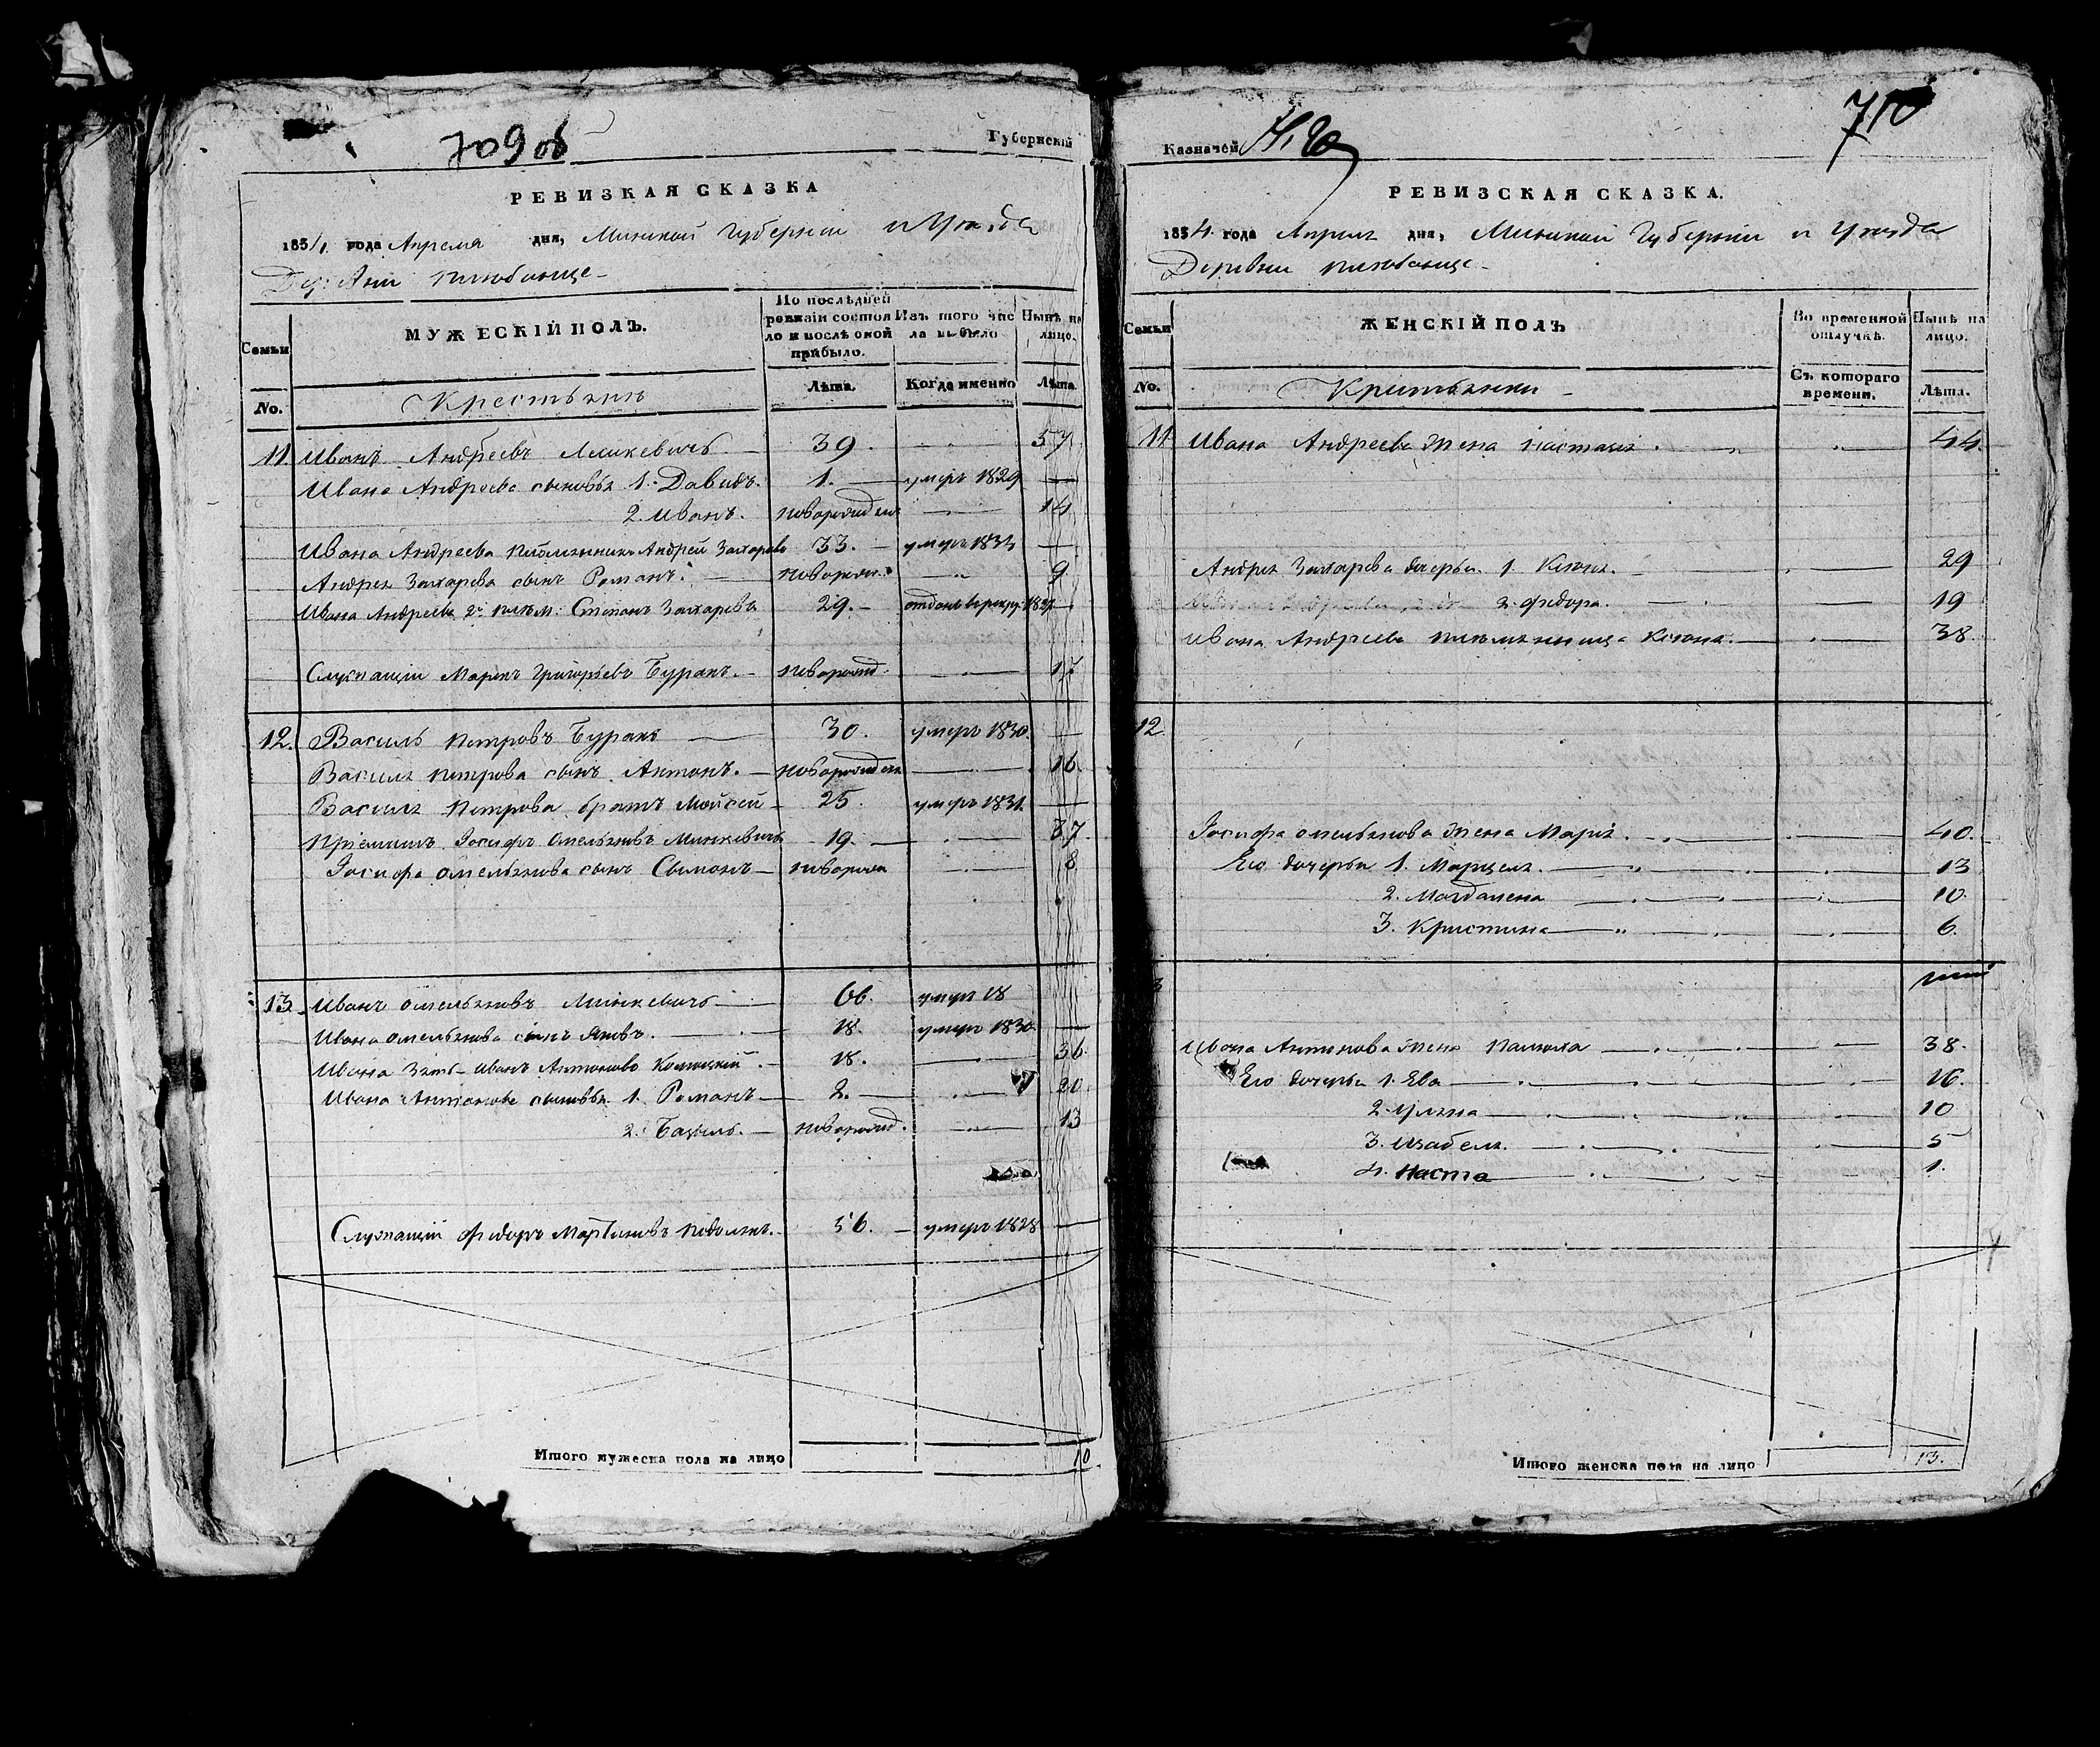 709 об
Губернскій
РЕВИЗКАЯ СКАЗКА
1854. года Апреля дня, Минской Губерніи и Уѣзда
Деревни
Семьи
МУЖЕСКІЙ ПОЛЪ.
По послѣдней ревизіи состояло и послѣ оной прибыло.
Изъ того числа выбыло
Нынѣ на лицо.
No.
Крестьянъ
Лѣта.
Когда именно
Лѣта.
11 Иванъ Андреевъ Минкевичъ 39. 57
Ивана Андреева сыновья 1. Давидъ. 1. умеръ 1829
2. Иванъ. новорожден 14
Ивана Андреева племянникъ Андрей Захаревъ 33. умеръ
Андрея Захарева сынъ Романъ. новорож. 9
Ивана Андреева 2й плем: Степанъ Захаревъ 29. отданъ в рекру.
Служащій Марко Григорьевъ Буракъ. новорожд. 17
12. Василь Петровъ Буракъ 30. умеръ 1830.
Василя Петрова сынъ Антонъ. новорожден 16
Василя Петрова братъ Мойсей 25. умеръ 1831.
Пріемышъ Іосифъ Омельяновъ Минкевичъ 19. 37
Іосифа Омельянова сынъ Сымонъ новорож 8
13. Иванъ Омельяновъ Минкевичъ 66. умеръ 18
Ивана Омельянова сынъ Яковъ. 18. умеръ 1830.
Ивана зять Иванъ Антоновъ 18. 36
Ивана Антонова сыновья 1. Романъ 2. 20
2. Базыль. новорожд. 13
Служащій Федоръ Мартиновъ 56. умеръ 1828
Итого мужеска пола на лицо 10.
Казначей
710
РЕВИЗСКАЯ СКАЗКА.
1854. года Апреля дня, Минской Губерніи и Уѣзда
Деревни
Семьи
ЖЕНСКІЙ ПОЛЪ
Во временной отлучкѣ.
Нынѣ на лицо.
No.
Крестьянки
Съ котораго времени.
Лѣта.
11 Ивана Андреева жена Настасья 44.
Андрея Захарева дочерьи 1. Ксюня. 29
2. Федора. 19
Ивана Андреева племянница Ксюня. 38.
12
Іосифа Омельянова жена Марья. 40.
Его дочерьи 1. Марцеля. 13
2. Магдалена 10.
3. Кристина 6.
Ивана Антонова жена 38.
Его дочерьи 1. Ева 16.
2. Ульяна 10
3. Изабеля. 5
4. Наста 1.
Итого женска пола на лицо 13.